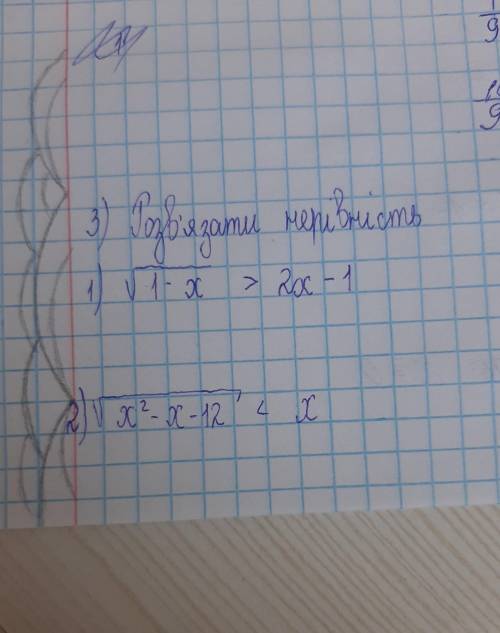 3) Розв'язати нерівність
1) √1-x > 2x-1
2) √x²-x-12 < x
1
9
9